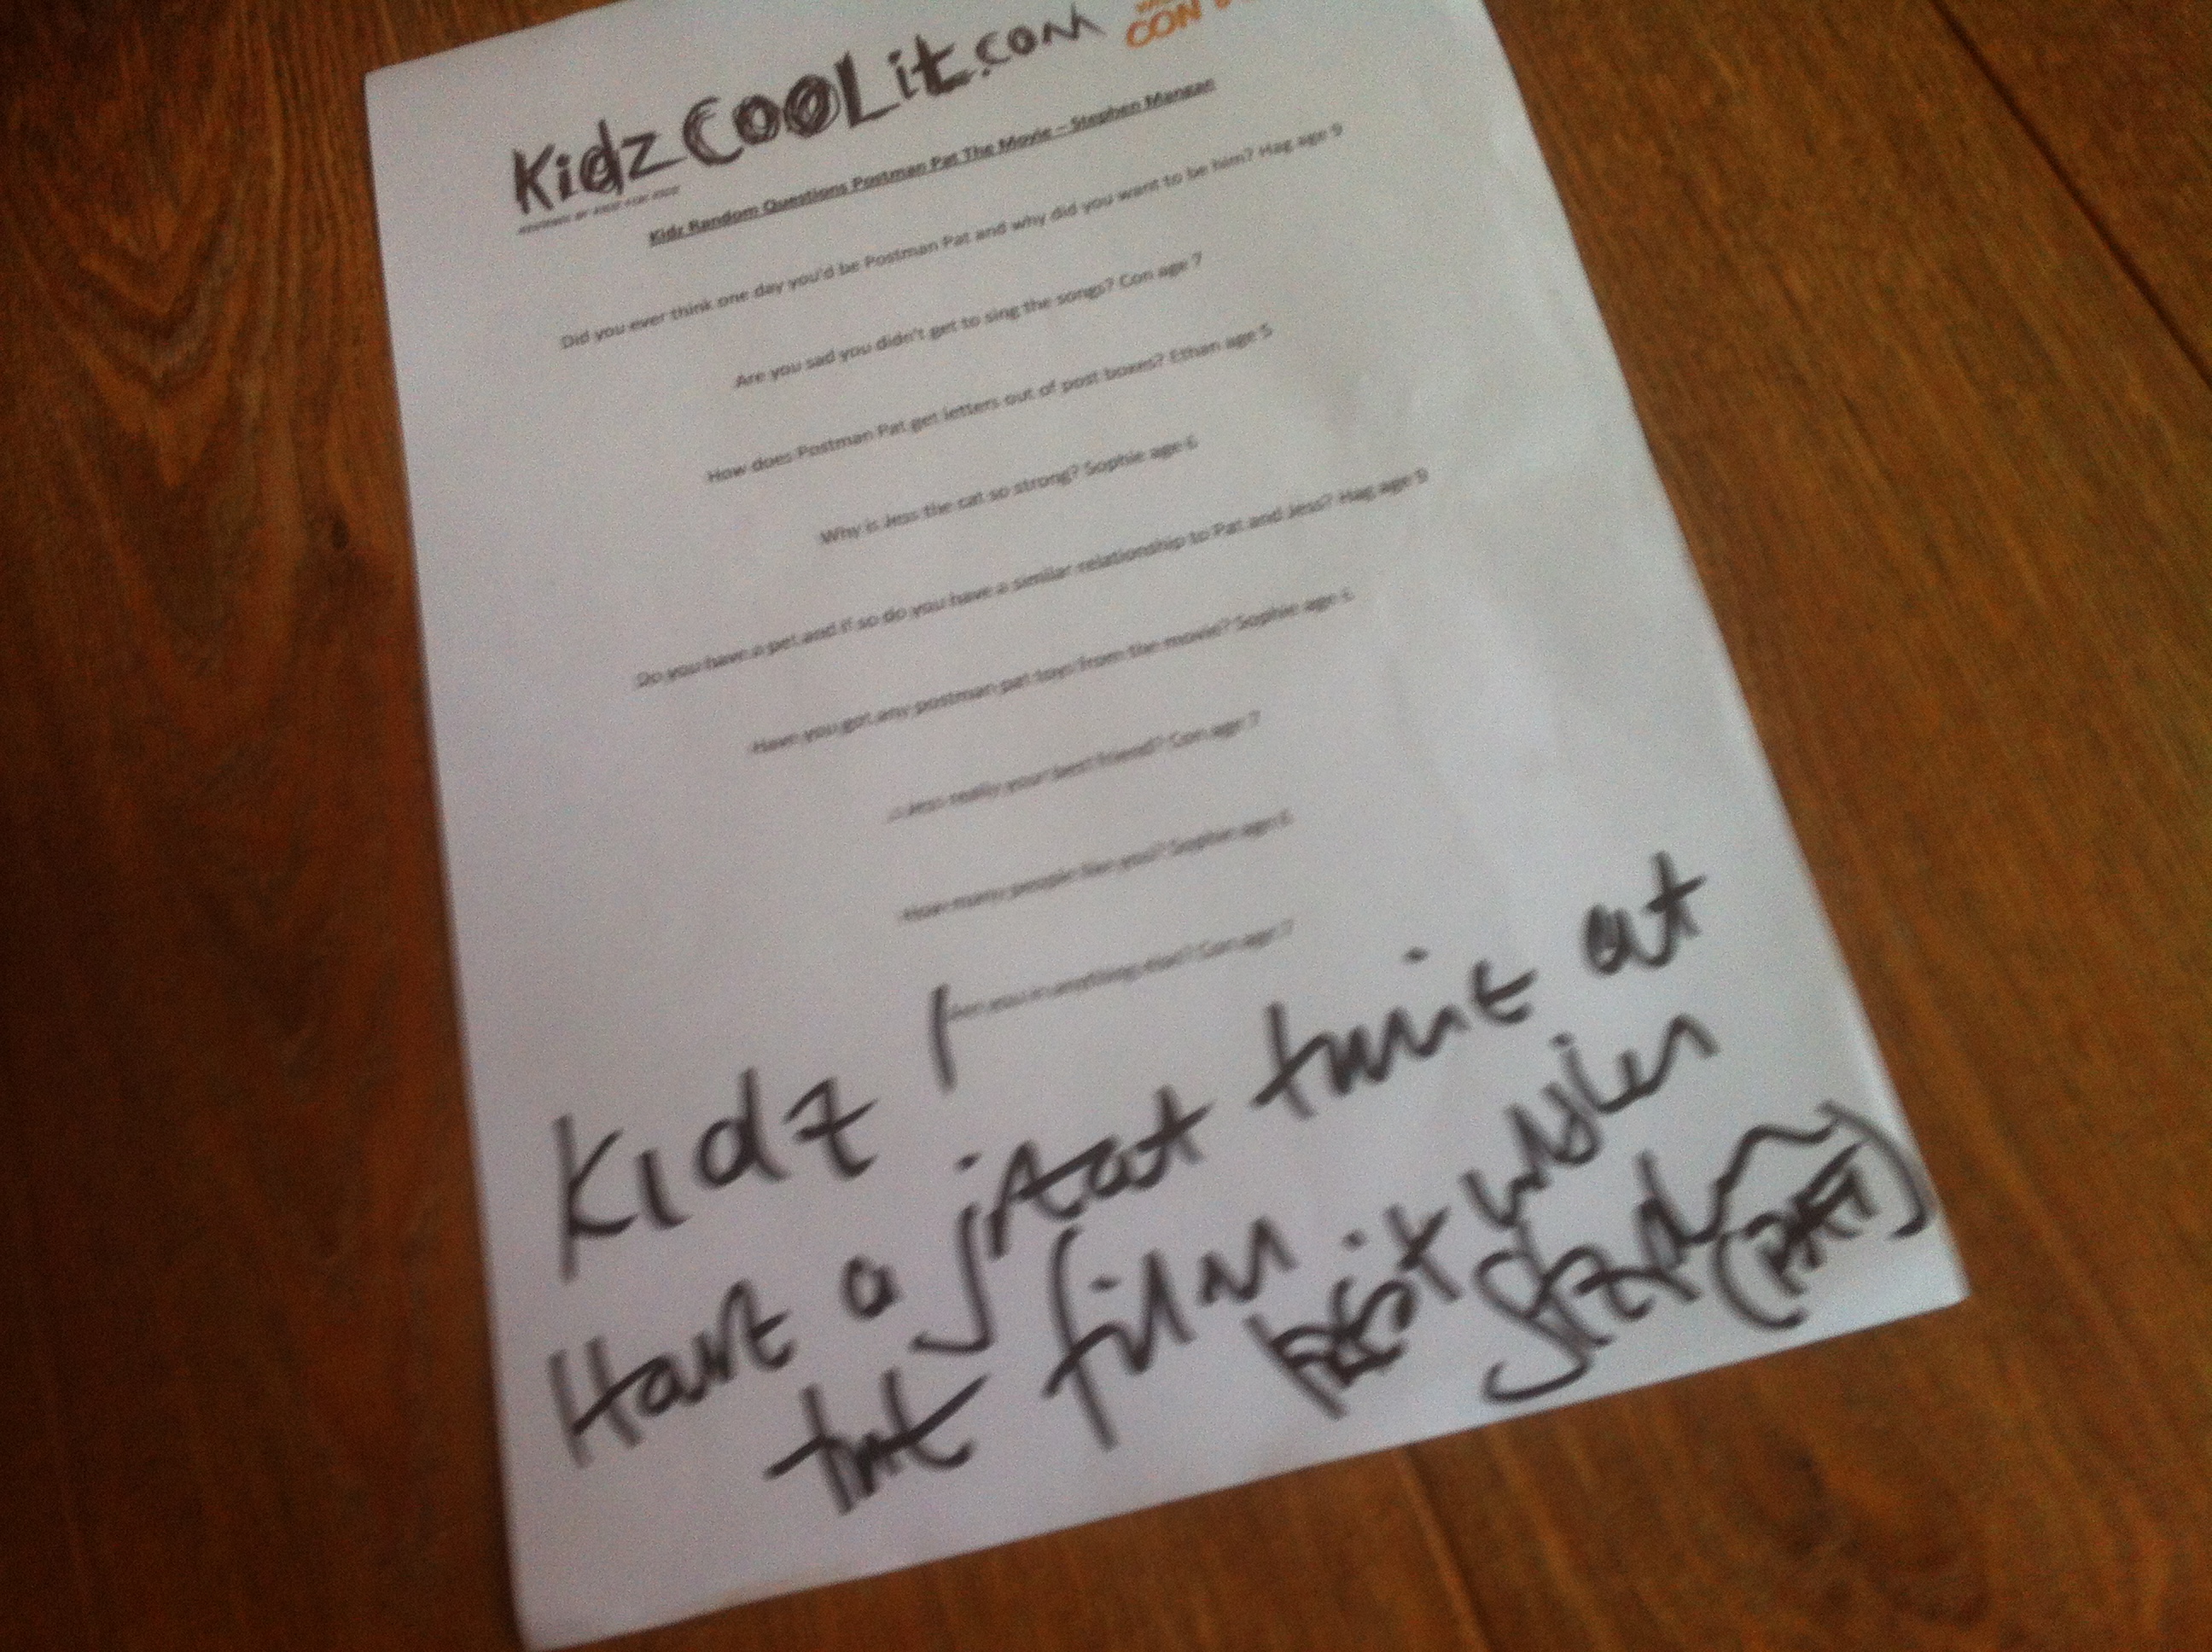 KidzCOOLit.com
CON
REVIEWS BY KIDZ FOR KIDZ
Kidz Random Questions Postman Pat The Movie – Stephen Mangan
Did you ever think one day you'd be Postman Pat and why did you want to be him? Hag age 9
Are you sad you didn't get to sing the songs? Con age 7
How does Postman Pat get letters out of post boxes? Ethan age 5
Why is Jess the cat so strong? Sophie age 6
Do you have a pet and if so do you have a similar relationship to Pat and Jess? Hag age 9
Have you got any postman pat toys from the movie? Sophie age 6
Is Jess really your best friend? Con age 7
How many people like you? Sophie age 6
Are you in anything else? Con age 7
Kidz!
Have a great time at
the film
best wishes
(PAT)